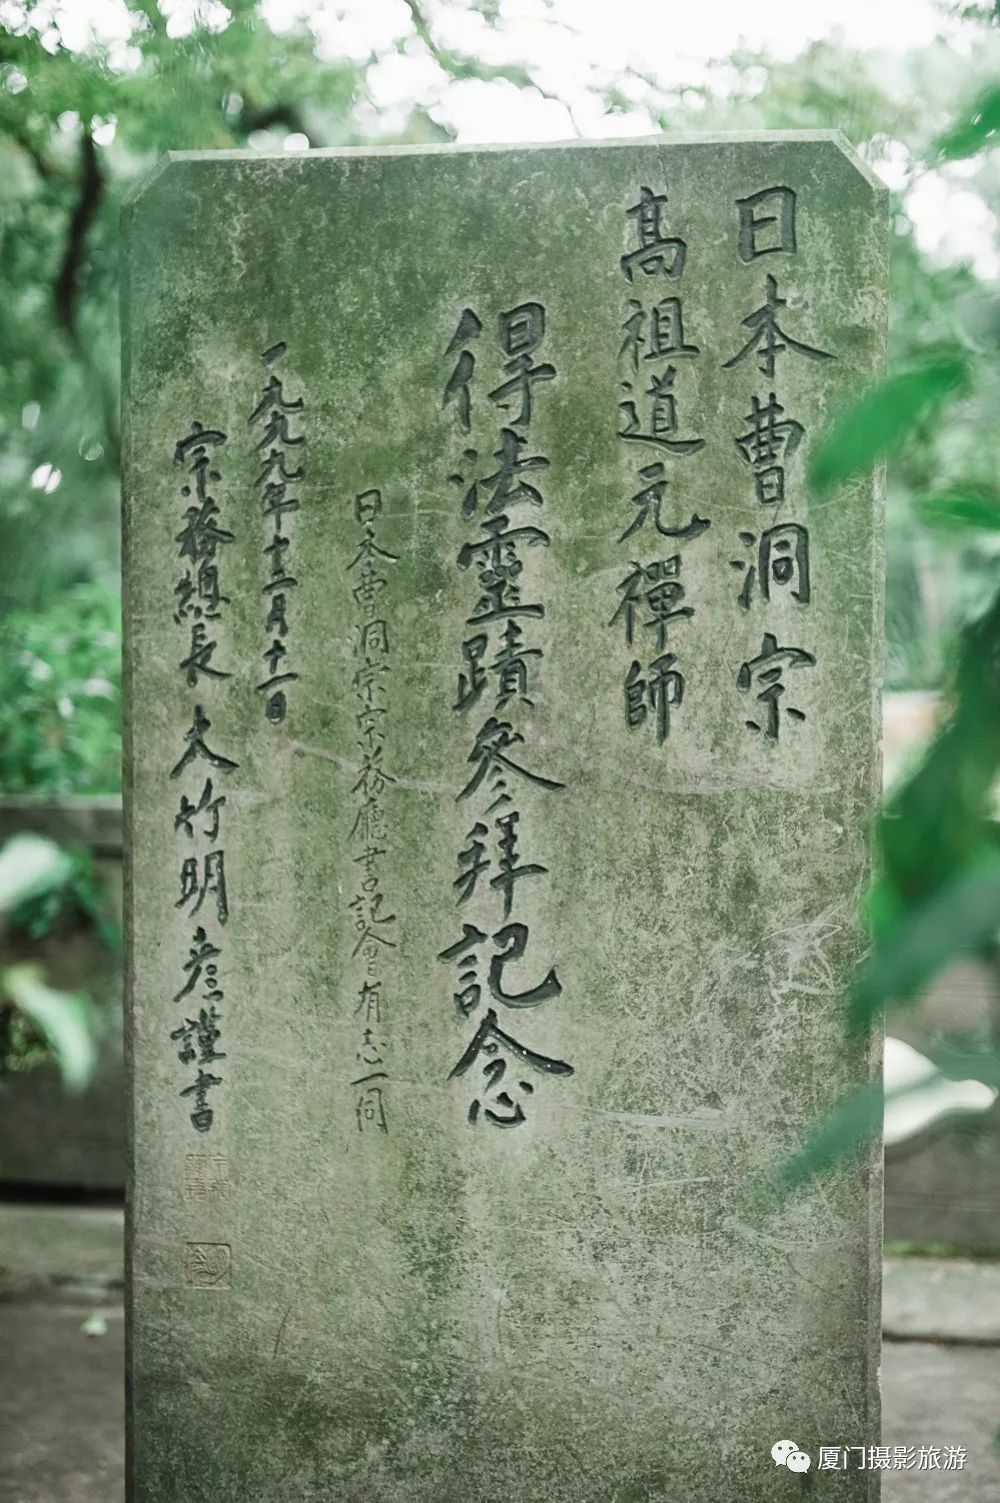 日本曹洞宗
高祖道元禪師
得法靈蹟參拜記念
日本曹洞宗宗務廳書記會有志一同
一九九九年十二月十一日
宗務總長 大竹明彦謹書
厦门摄影旅游